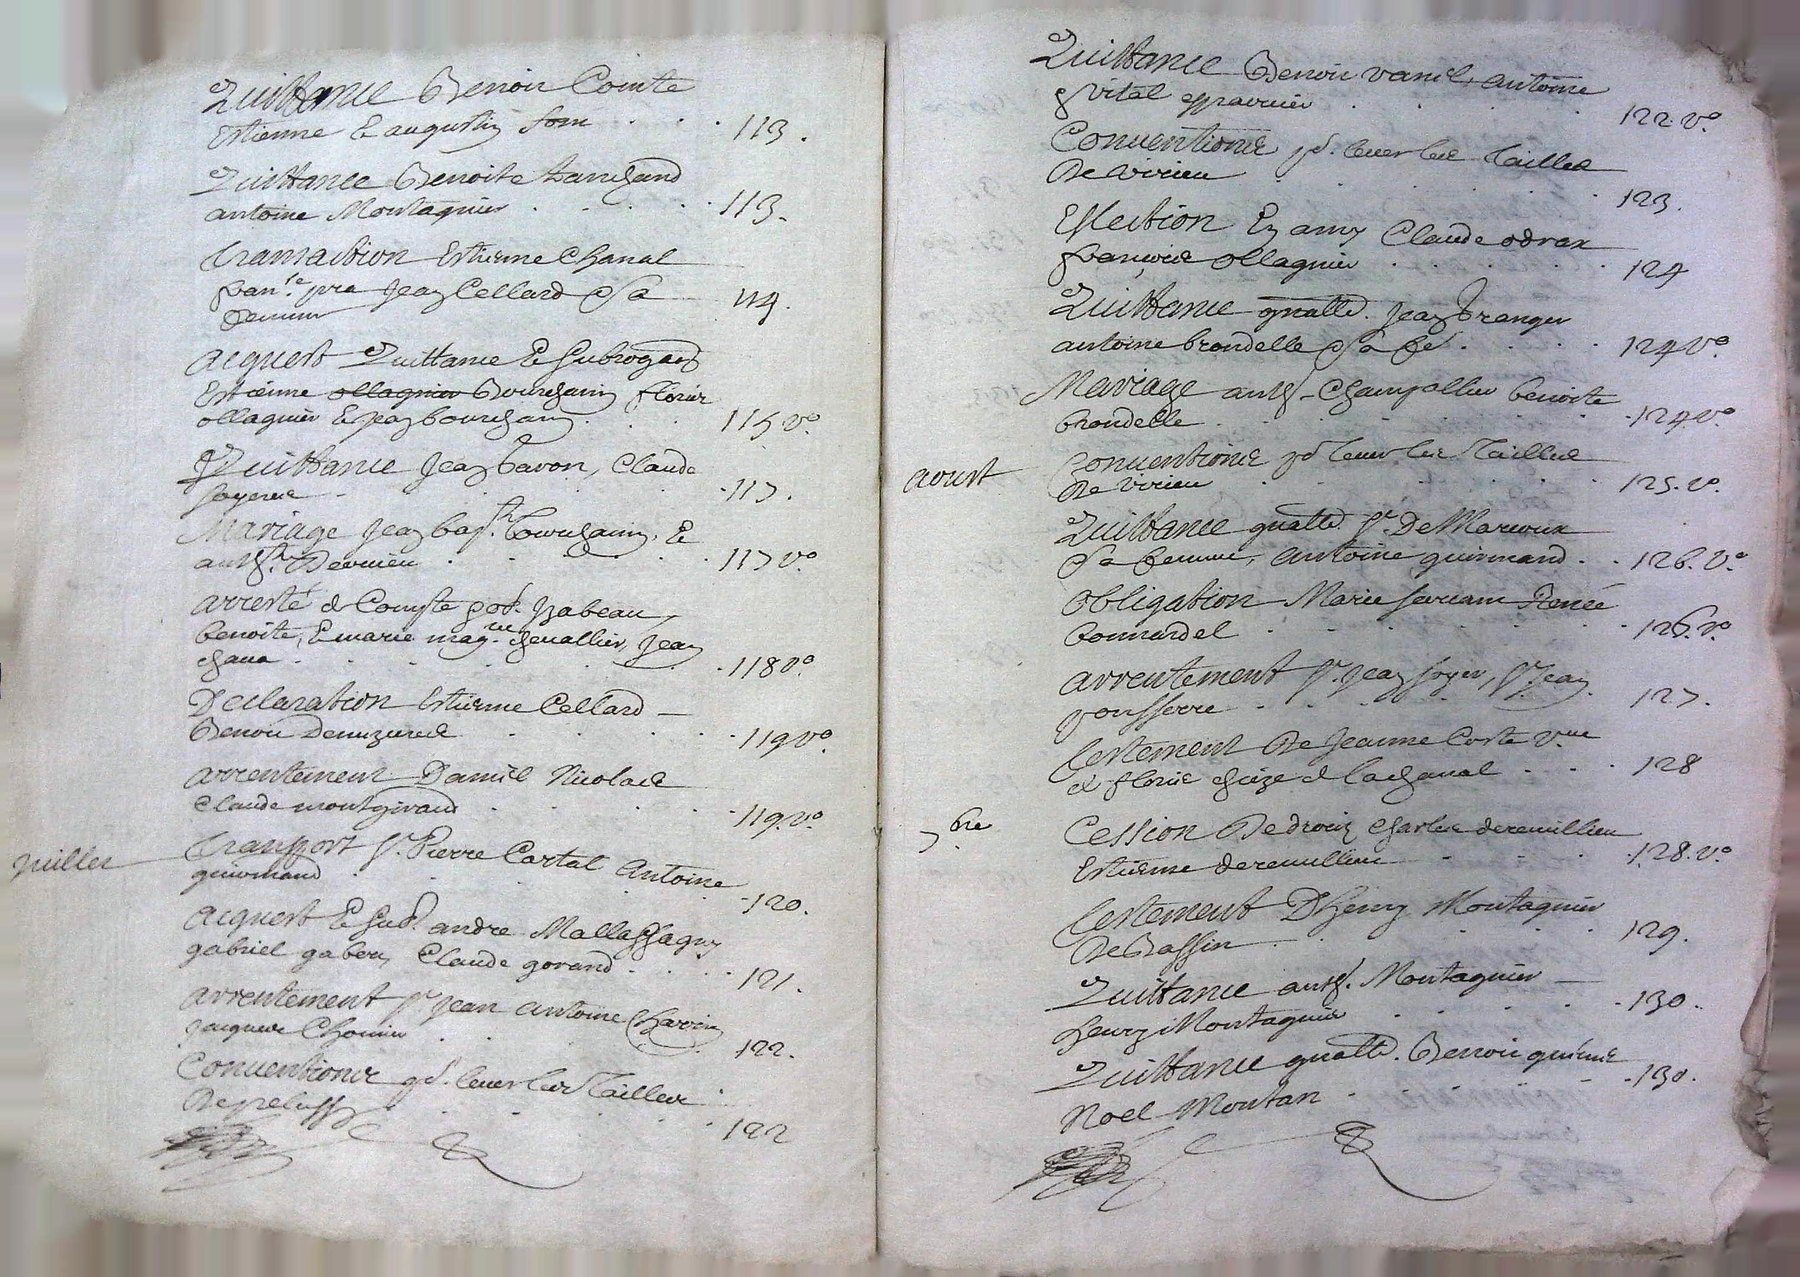 Quittance Benoit Cointe
Estienne E augustin fom 113.
Quittance Benoite
antoine Montagnier 113.
Transaction Estienne Chanal
Jean Cellard Sa
femme 114.
acquest Quittance E Subrogaõn
Estienne ollagnier Bourchanin florie
ollagnier E Jean bourchanin 115 vo
Quittance Jean bavon, Claude
foyerie 117.
Mariage Jean bapt. E
anth. Deuvieu 117 vo
arresté de Compte Izabeau,
benoite, E marie chevallier, Jean
chava 118 vo
Declaration Estienne Cellard
Benoit 119 vo
arrentement Daniel Nicolas
Claude montgiraud 119. vo
juillet
Transport Sr. Pierre Cartal Antoine
guirimand 120.
acquest E Sub. andre Mallassagny
gabriel gabert, Claude gorand 121.
arrentement Sr Jean antoine Charrin
jacques Chomier 122.
Conventions pr. lever les Tailles
De pelussy 122
Quittance Benoit vanel, antoine
vital 122. vo
Conventions pr. lever les Tailles
De virieu 123.
Eslection En amy Claude odrax
françois ollagnier 124
Quittance Jean Branger
antoine brondelle Sa fe 124 vo
Mariage anth. Champallier benoite
brondelle 124 vo.
aoust
Conventions pr lever les Tailles
De Virieu 125. vo.
Quittance Sr. De Marcoux
Sa femme, antoine guirimand 126. vo
Obligation Marie Renée
bonnardel 126. vo
arrentement Sr. Jean foyer, Sr. Jean
poufferre 127.
Testement De Jeanne Coste vve
de florie chieze de lachanal 128
7.bre
Cession De droit Charles derevillieu
Estienne derevillieu 128. vo
Testement D'henry Montagnier
De Bassin 129.
Quittance anth. Montagnier
henry Montagnier 130.
Quittance Benoit
Noel Montan 130.